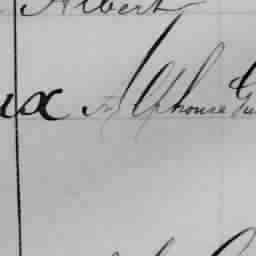 Albert
ux Alphonse Gu